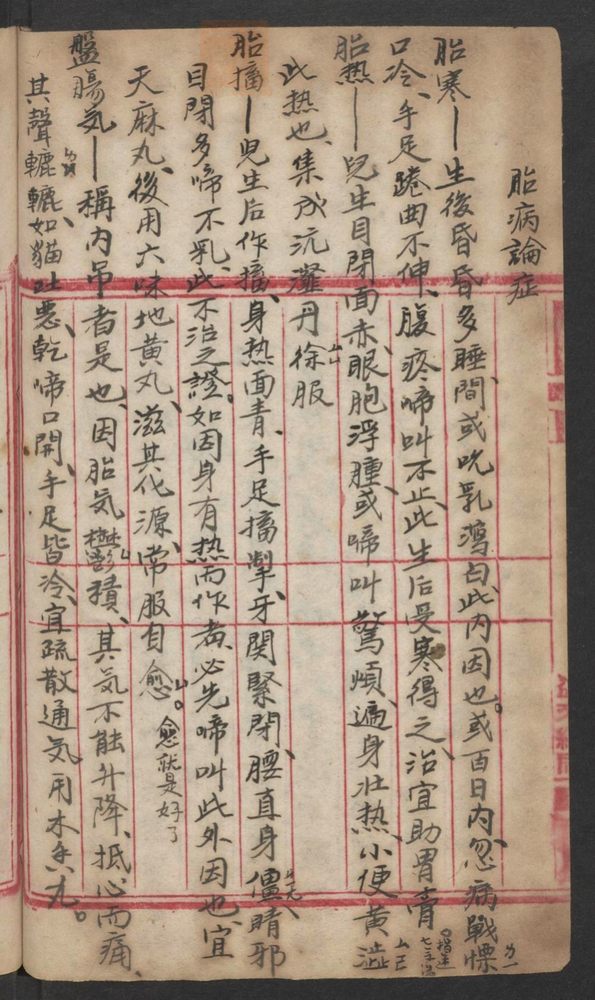 胎病論症
胎寒—生後昏昏多睡、間或吮乳瀉白、此內因也。或百日內、忽病戰慄
口冷、手足踡曲不伸、腹疼啼叫不止、此生后受寒得之、治宜助胃膏
胎热—兒生目閉面赤、眼胞浮腫、或啼叫驚煩、遍身壮热、小便黄澁
此热也、集成沆瀣丹徐服
胎搐—兒生后作搐、身热面青、手足搐掣、牙関緊閉、腰直身僵、睛邪
目閉多啼不乳、此不治之證。如因身有热而作者、必先啼叫此外因也、宜
天麻丸、後用六味地黄丸、滋其化源、常服自愈。愈就是好了
盤腸気—稱內吊者是也、因胎気欝積、其気不能升降、抵心而痛、
其聲轆轆、如貓吐惡、乾啼口開、手足皆冷、宜疏散通気、用木香丸。